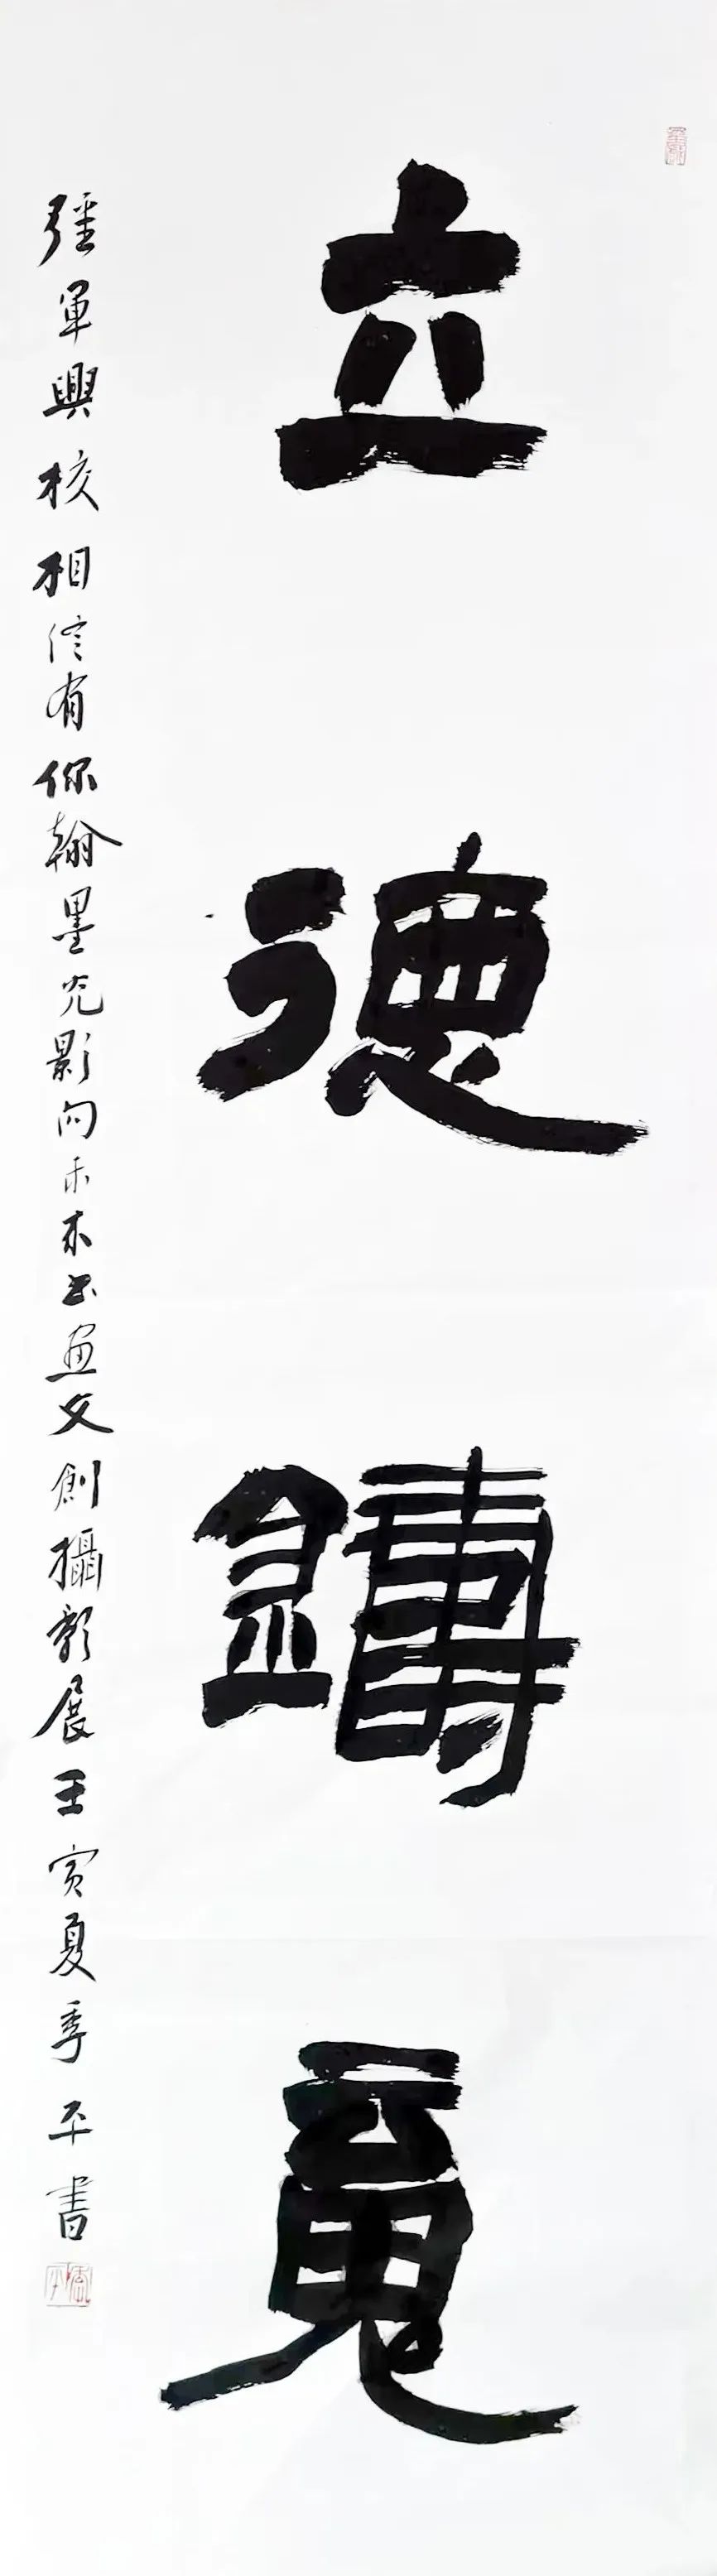 立德鑄魂
強軍興校相信有你翰墨光影向未木書画文創攝影展壬寅夏季平書